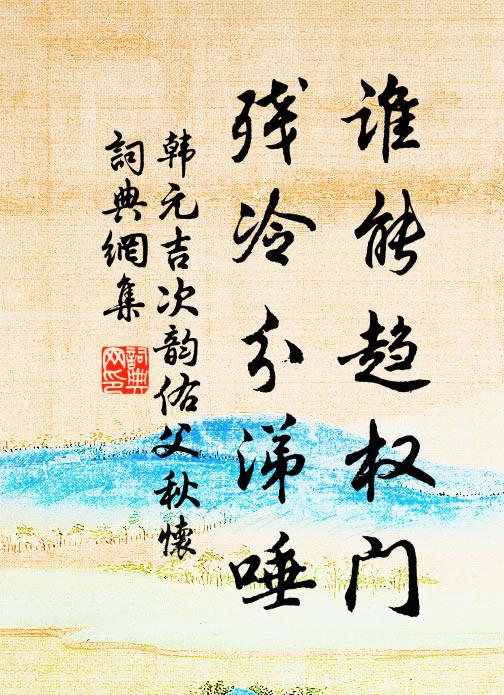 谁能趋权门
残冷分涕唾
韩元吉次韵佑父秋懷
詞典網集
詞典
网印